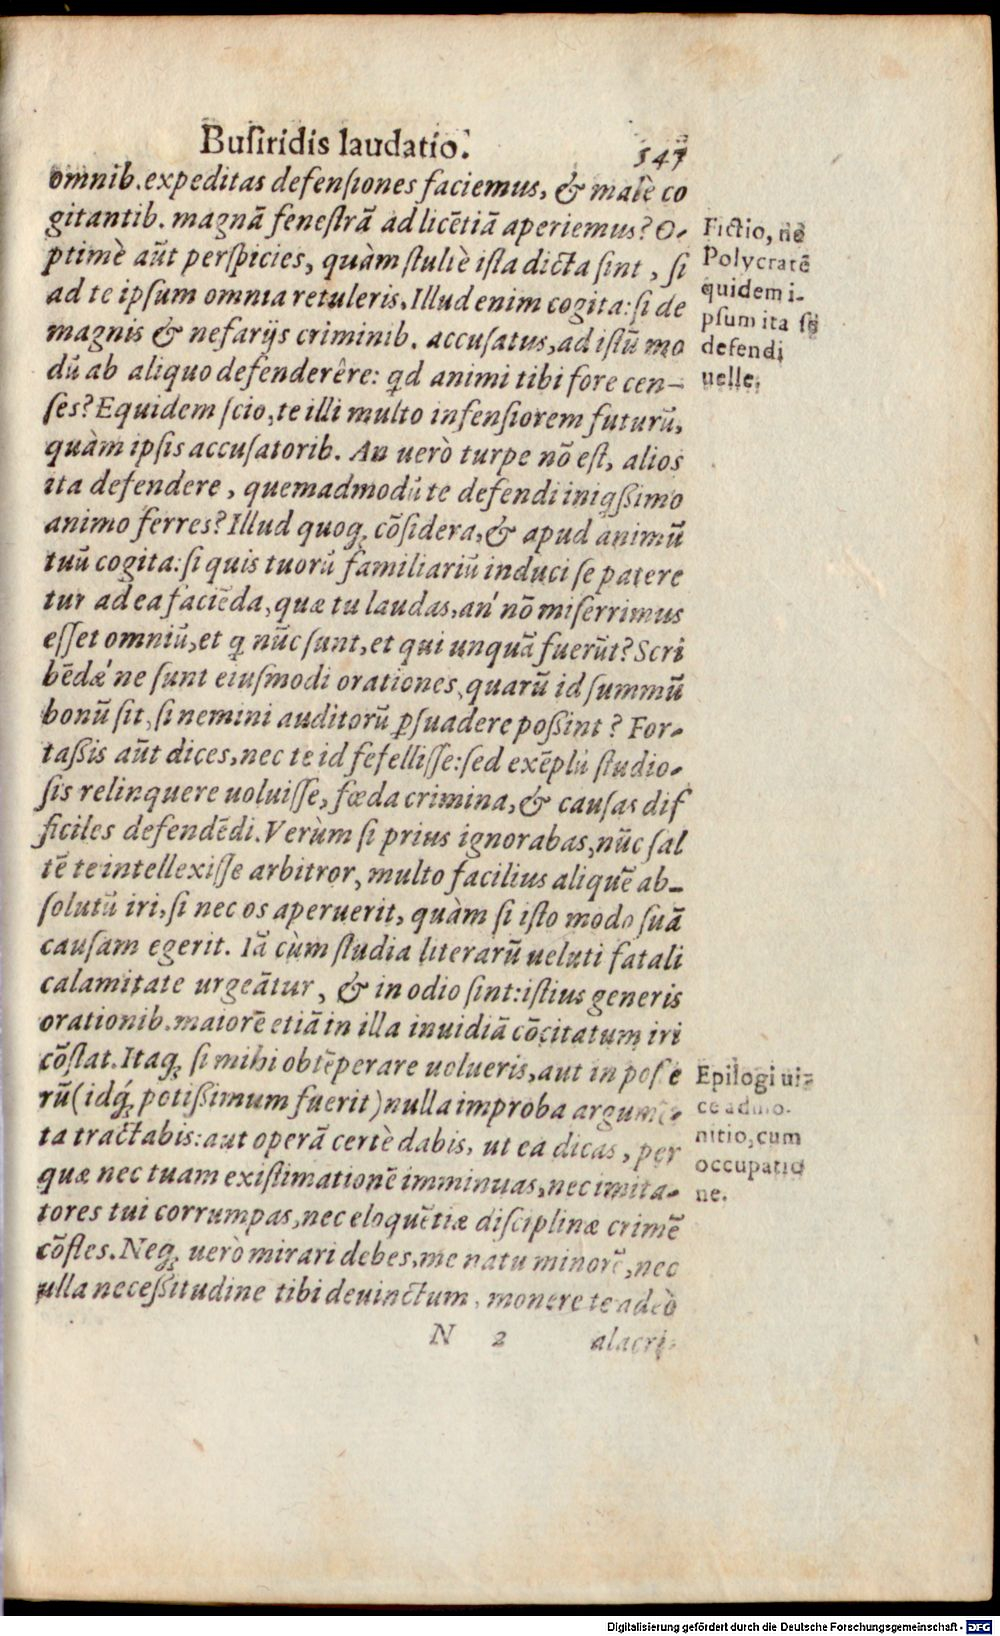 Buſiridis laudatio. 547
omnib. expeditas defenſiones faciemus, & malè co
gitantib. magnā feneſtrā ad licētiā aperiemus? O-
ptimè aūt perſpicies, quàm ſtultè iſta dicta ſint, ſi
ad te ipſum omnia retuleris. Illud enim cogita: ſi de
magnis & nefarijs criminib. accuſatus, ad iſtū mo
dū ab aliquo defenderêre: qd animi tibi fore cen-
ſes? Equidem ſcio, te illi multo infenſiorem futurū,
quàm ipſis accuſatorib. An uerò turpe nō eſt, alios
ita defendere, quemadmodū te defendi iniqßimo
animo ferres? Illud quoq; cōſidera, & apud animū
tuū cogita: ſi quis tuorū familiariū induci ſe patere
tur ad ea faciēda, quæ tu laudas, an' nō miſerrimus
eſſet omniū, et q nūc ſunt, et qui unquā fuerūt? Scri
bēdæ' ne ſunt eiuſmodi orationes, quarū id ſummū
bonū ſit, ſi nemini auditorū ꝑſuadere poßint? For-
taßis aūt dices, nec te id fefelliſſe: ſed exēplū ſtudio-
ſis relinquere uoluiſſe, fœda crimina, & cauſas dif
ficiles defendēdi. Verùm ſi prius ignorabas, nūc ſal
tē te intellexiſſe arbitror, multo facilius aliquē ab-
ſolutū iri, ſi nec os aperuerit, quàm ſi iſto modo ſuā
cauſam egerit. Iā cùm ſtudia literarū ueluti fatali
calamitate urgeātur, & in odio ſint: iſtius generis
orationib. maiorē etiā in illa inuidiā cōcitatum iri
cōſtat. Itaq; ſi mihi obtēperare uolueris, aut in poſte
rū (idq́; potißimum fuerit) nulla improba argumē-
ta tractabis: aut operā certè dabis, ut ea dicas, per
quæ nec tuam exiſtimationē imminuas, nec imita-
tores tui corrumpas, nec eloquētiæ diſciplinæ crimē
cōfles. Neq; uerò mirari debes, me natu minorē, nec
ulla neceßitudine tibi deuinctum, monere te adeò
N 2 alacri-
Fictio, ne
Polycratē
quidem i-
pſum ita ſe
defendi
uelle.
Epilogi ui-
ce admo-
nitio, cum
occupatio
ne.
Digitalisierung gefördert durch die Deutsche Forschungsgemeinschaft - DFG